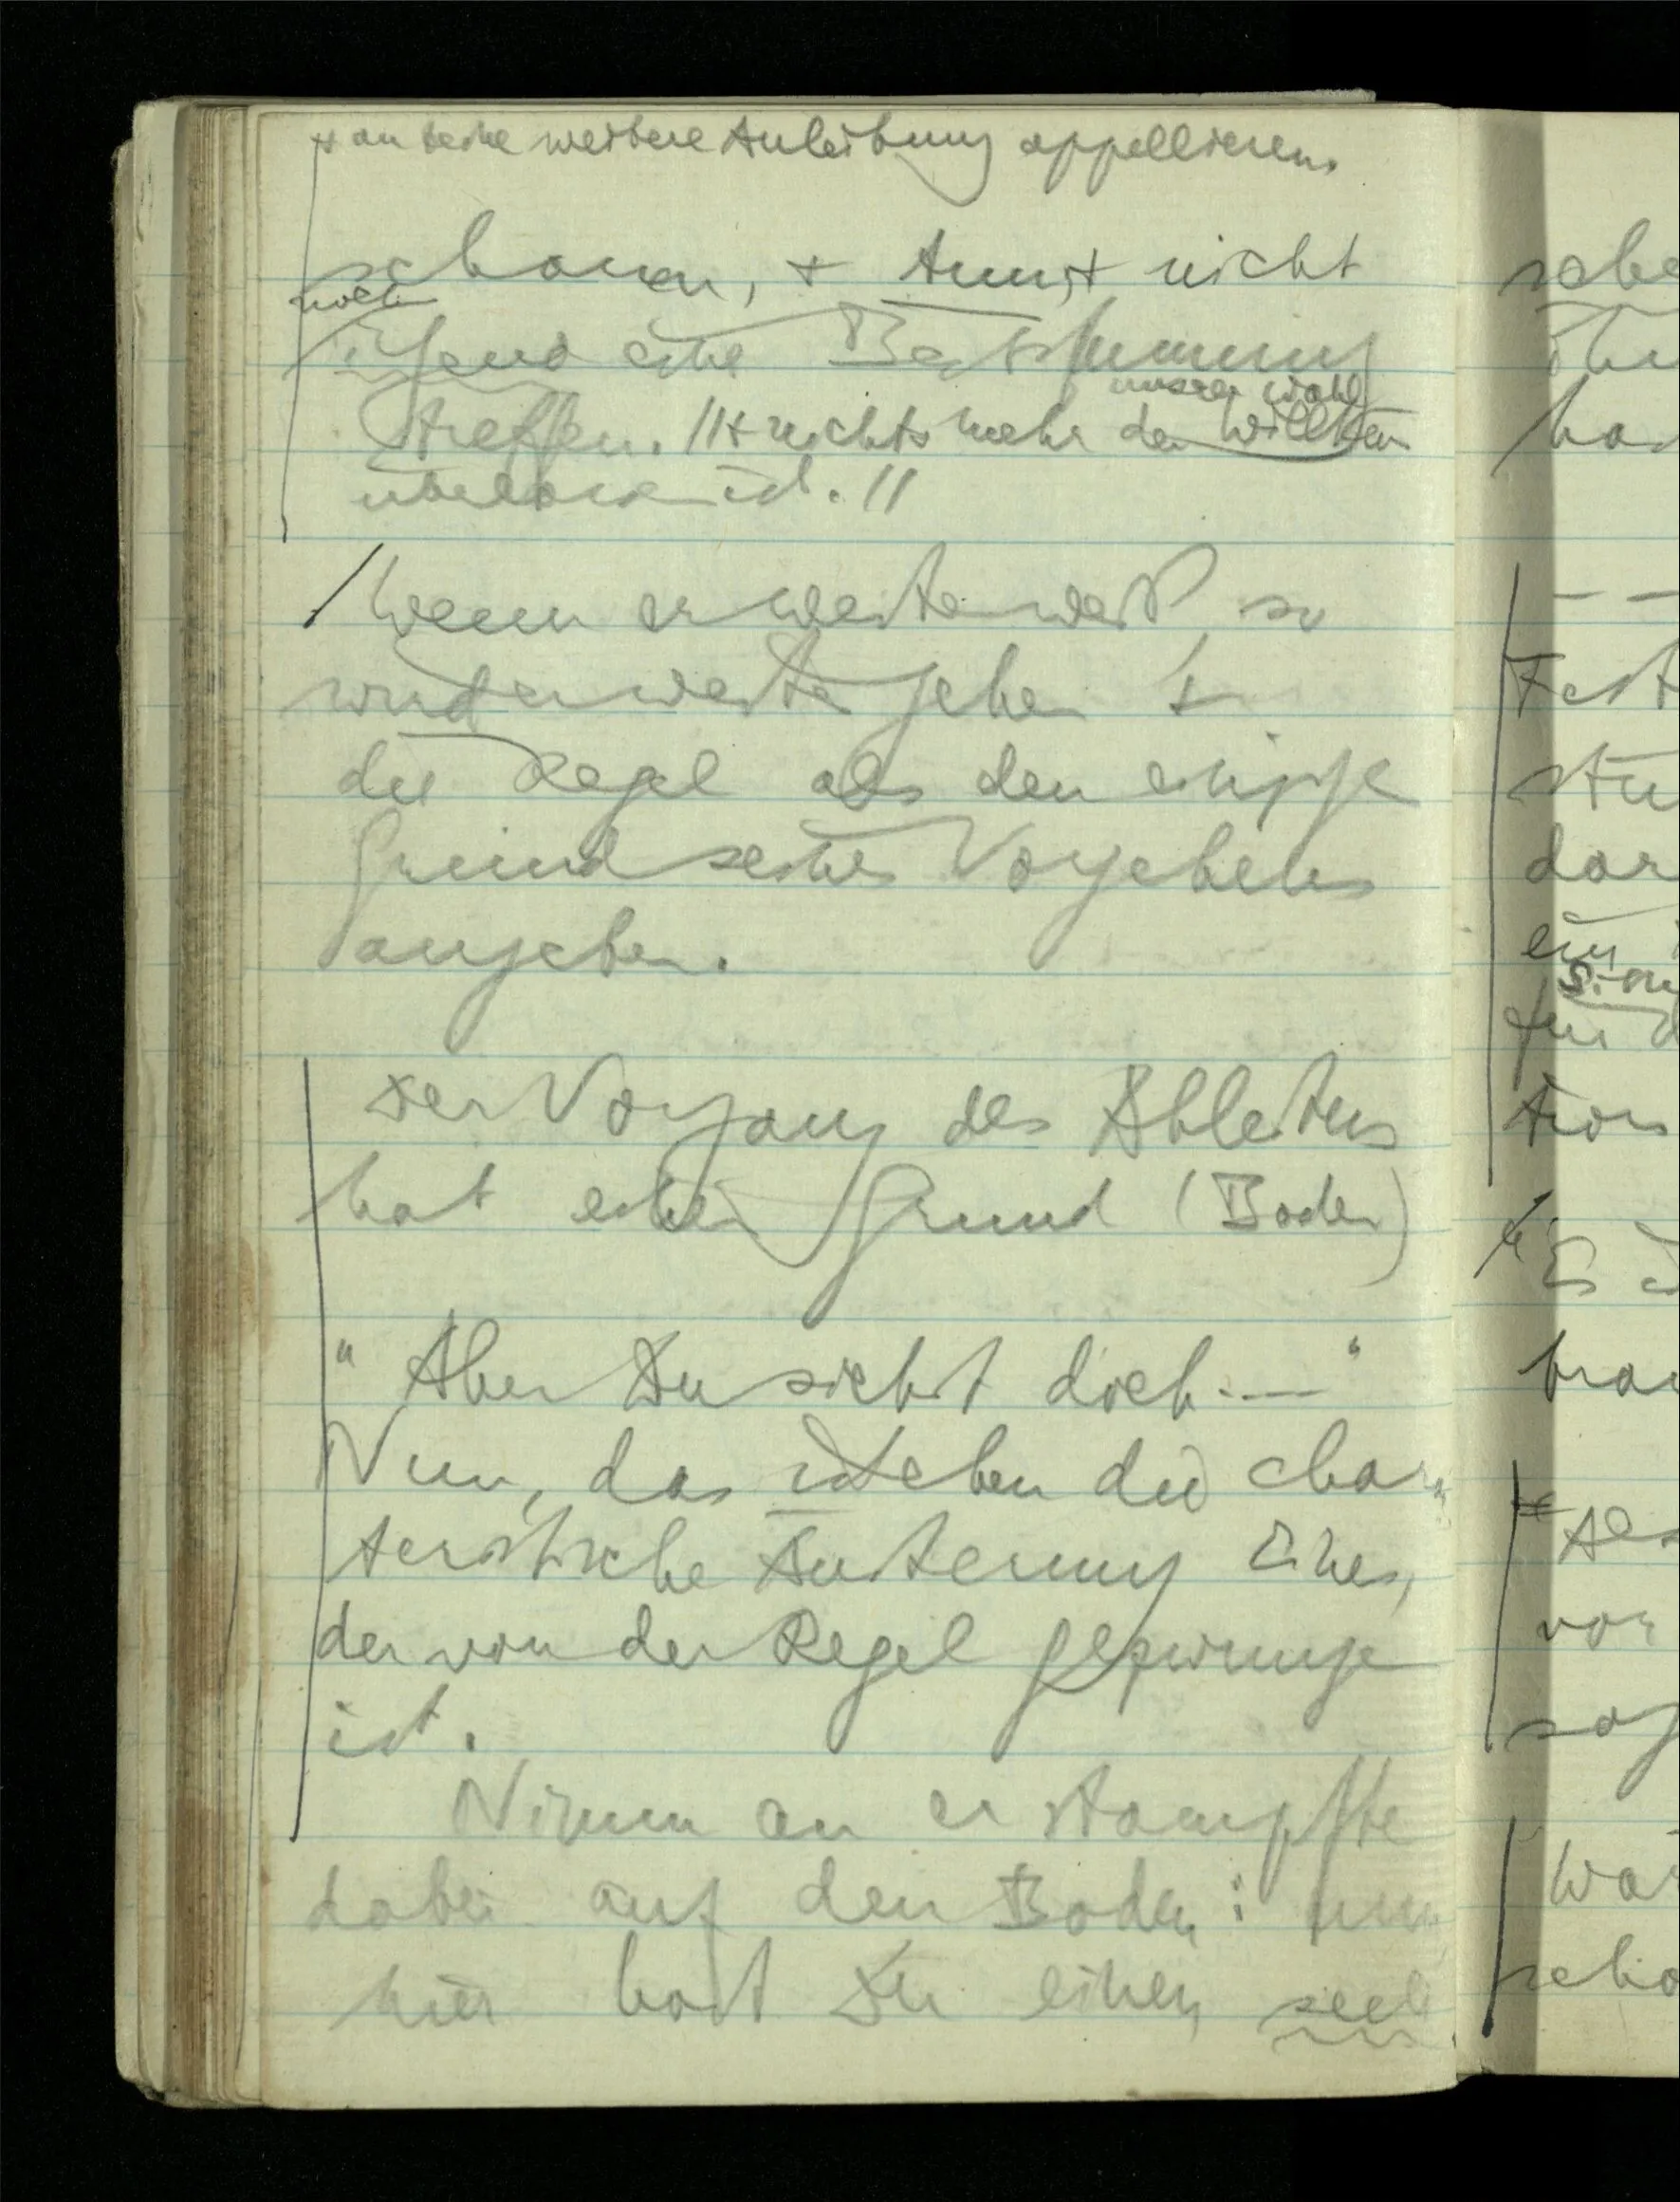 + an keine weitere Anleitung appellieren.
schauen, + tun, + nicht
noch
irgend eine Bestimmung
unserer Wahl
treffen. // + nichts mehr der Willkür
überlassen ist. //
/ Wenn er weiter weiß, so
wird er weiter gehen &
die Regel als den einzigen
Grund seines Vorgehens
angeben.
Der Vorgang des Ableitens
hat einen Grund (Boden)
"Aber Du siehst doch .—"
Nun, das ist eben die charak
teristische Äußerung Eines,
der von der Regel gezwungen
ist.
Nimm an er stampfte
dabei auf den Boden: nun
hier hast Du einen seel
sche
ohn
ha
– –
Fest
stu
dar
ein
für d
tion
Es i
brau
vor
sag
Wa
scho